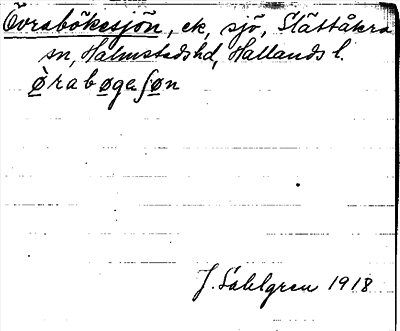 Övraböke­sjön, ek, sjö, Slättåkra
sn, Halmstads hd, Hallands l.
ørabøgesøn
J. Sahlgren 1918